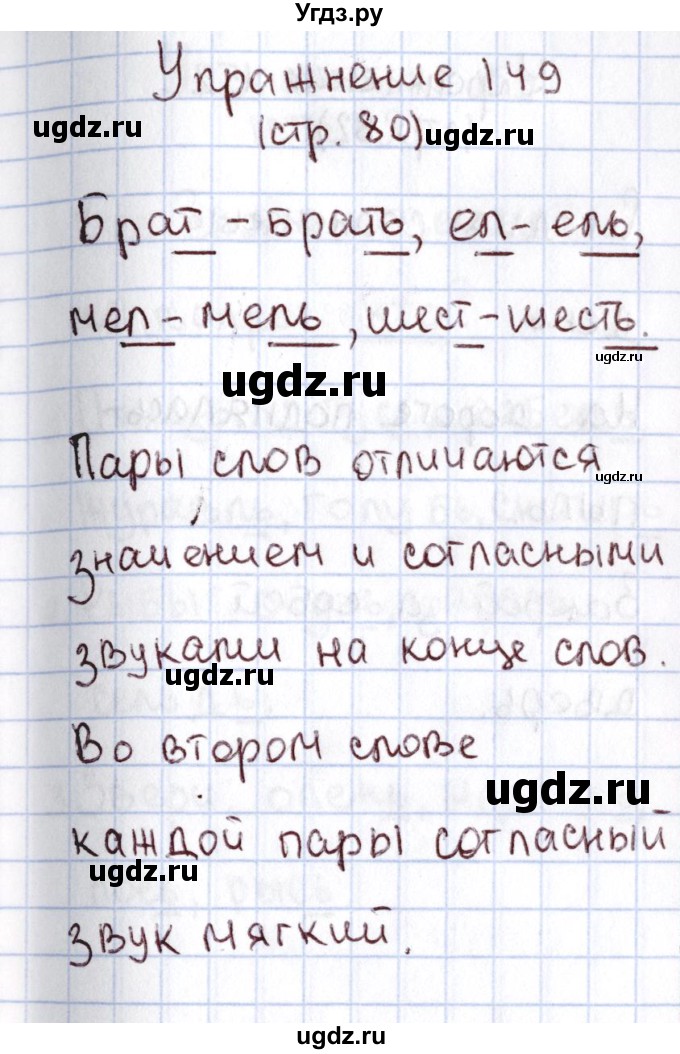 Угдз.ру
Упражнение 149
ugdz.ru (стр. 80) ugdz.ru
Брат - брать, ел - ель,
мел - мель, шест - шесть.
ugdz.ru
ugdz.ru
Пары слов отличаются
ugdz.ru
значением и согласными
звуками на конце слов.
ugdz.ru
Во втором слове
ugdz.ru
каждой пары согласный
ugdz.ru
звук мягкий.
ugdz.ru